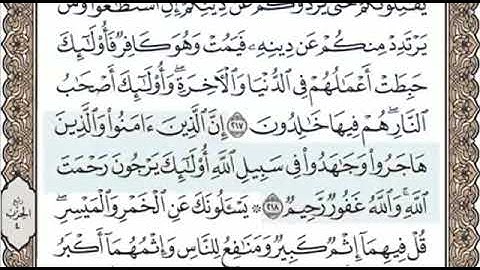 يُقَٰتِلُونَكُمْ حَتَّىٰ يَرُدُّوكُمْ عَن دِينِكُمْ إِنِ ٱسْتَطَٰعُوا۟ وَمَن
يَرْتَدِدْ مِنكُمْ عَن دِينِهِۦ فَيَمُتْ وَهُوَ كَافِرٌ فَأُو۟لَٰٓئِكَ
حَبِطَتْ أَعْمَٰلُهُمْ فِى ٱلدُّنْيَا وَٱلْءَاخِرَةِ ۖ وَأُو۟لَٰٓئِكَ أَصْحَٰبُ
ٱلنَّارِ ۖ هُمْ فِيهَا خَٰلِدُونَ ٢١٧ إِنَّ ٱلَّذِينَ ءَامَنُوا۟ وَٱلَّذِينَ
هَاجَرُوا۟ وَجَٰهَدُوا۟ فِى سَبِيلِ ٱللَّهِ أُو۟لَٰٓئِكَ يَرْجُونَ رَحْمَتَ
ٱللَّهِ ۚ وَٱللَّهُ غَفُورٌ رَّحِيمٌ ٢١٨ ۞ يَسْـَٔلُونَكَ عَنِ ٱلْخَمْرِ وَٱلْمَيْسِرِ ۖ
قُلْ فِيهِمَآ إِثْمٌ كَبِيرٌ وَمَنَٰفِعُ لِلنَّاسِ وَإِثْمُهُمَآ أَكْبَرُ
ربع
الحزب
٤